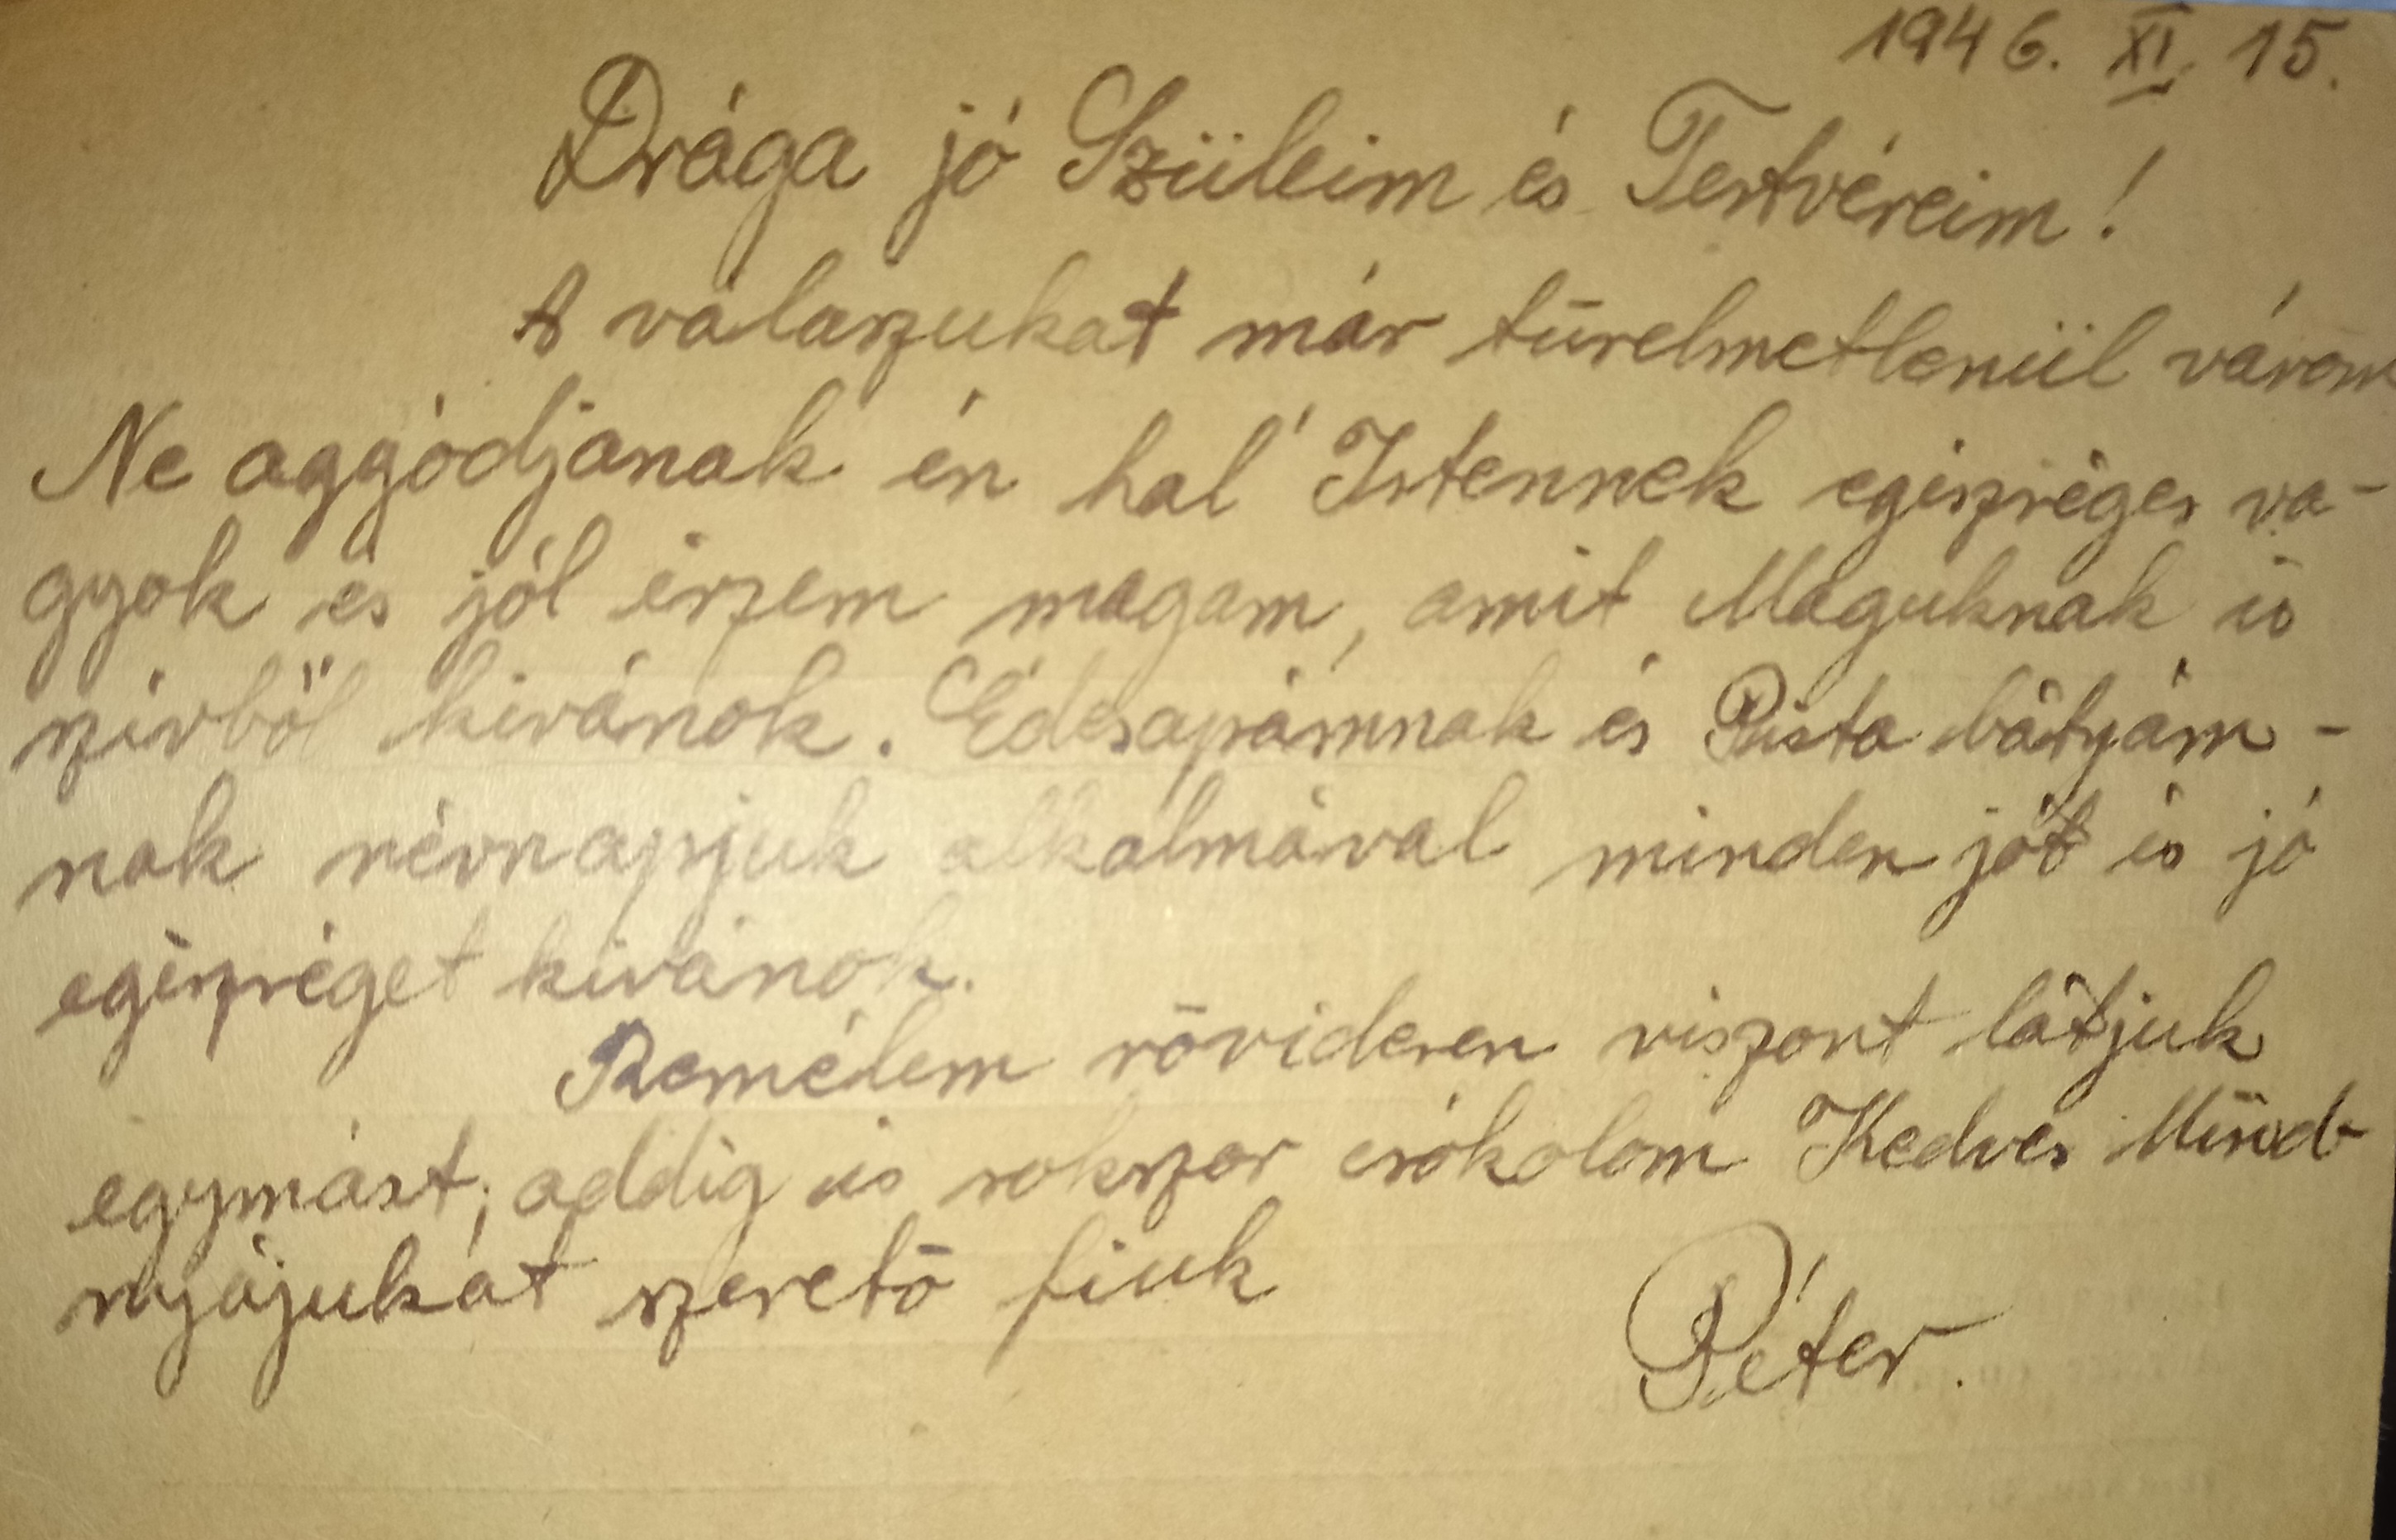 1946. XI. 15.
Drága jó Szüleim és Testvéreim!
A válaszukat már türelmetlenül várom
Ne aggódjanak én hál' Istennek egészséges va-
gyok és jól érzem magam, amit Maguknak is
szívből kívánok. Édesapámnak és Pista bátyám-
nak névnapjuk alkalmával minden jót és jó
egészséget kívánok.
Remélem rövidesen viszont látjuk
egymást, addig is sokszor csókolom Kedves Mind-
nyájukat szerető fiuk
Péter.